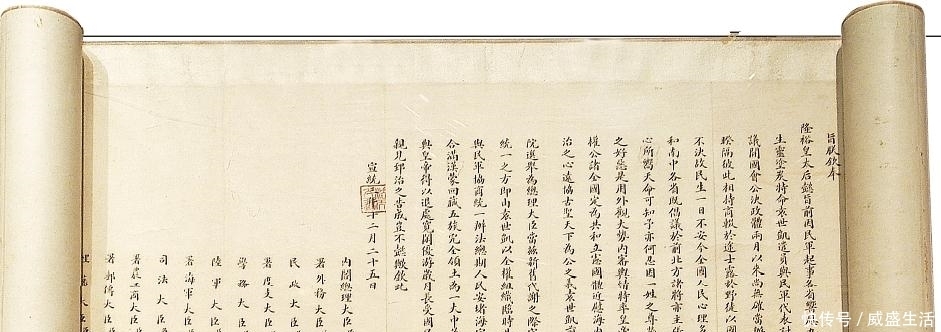 旨朕欽奉
隆裕皇太后懿旨前因民軍起事各省響
生靈塗炭特命袁世凱遣員與民軍代表
議開國會公決政體兩月以來尚無確當
睽隔彼此相持商輟於途士露於野徒以國
不決故民生一日不安今全國人民心理多
和南中各省既倡議於前北方諸將亦主
心所嚮天命可知予亦何忍因一姓之尊
之好惡是用外觀大勢內審輿情特率皇
權公諸全國定為共和立憲國體近慰海內
治之心遠協古聖天下為公之義袁世凱前
院選舉為總理大臣當茲新舊代謝之際
統一之方即由袁世凱以全權組織臨時
與民軍協商統一辦法總期人民安堵海宇
合滿漢蒙回藏五族完全領土為一大中
與皇帝得以退處寬閒優游歲月長受國
親見郅治之告成豈不懿歟欽此
宣統 十二月二十五日
內閣總理大臣
署外務大臣
民政大臣
署度支大臣
學務大臣
陸軍大臣
署海軍大臣
司法大臣
署農工商大臣
署郵傳大臣
理藩大臣
快传号／威盛生活